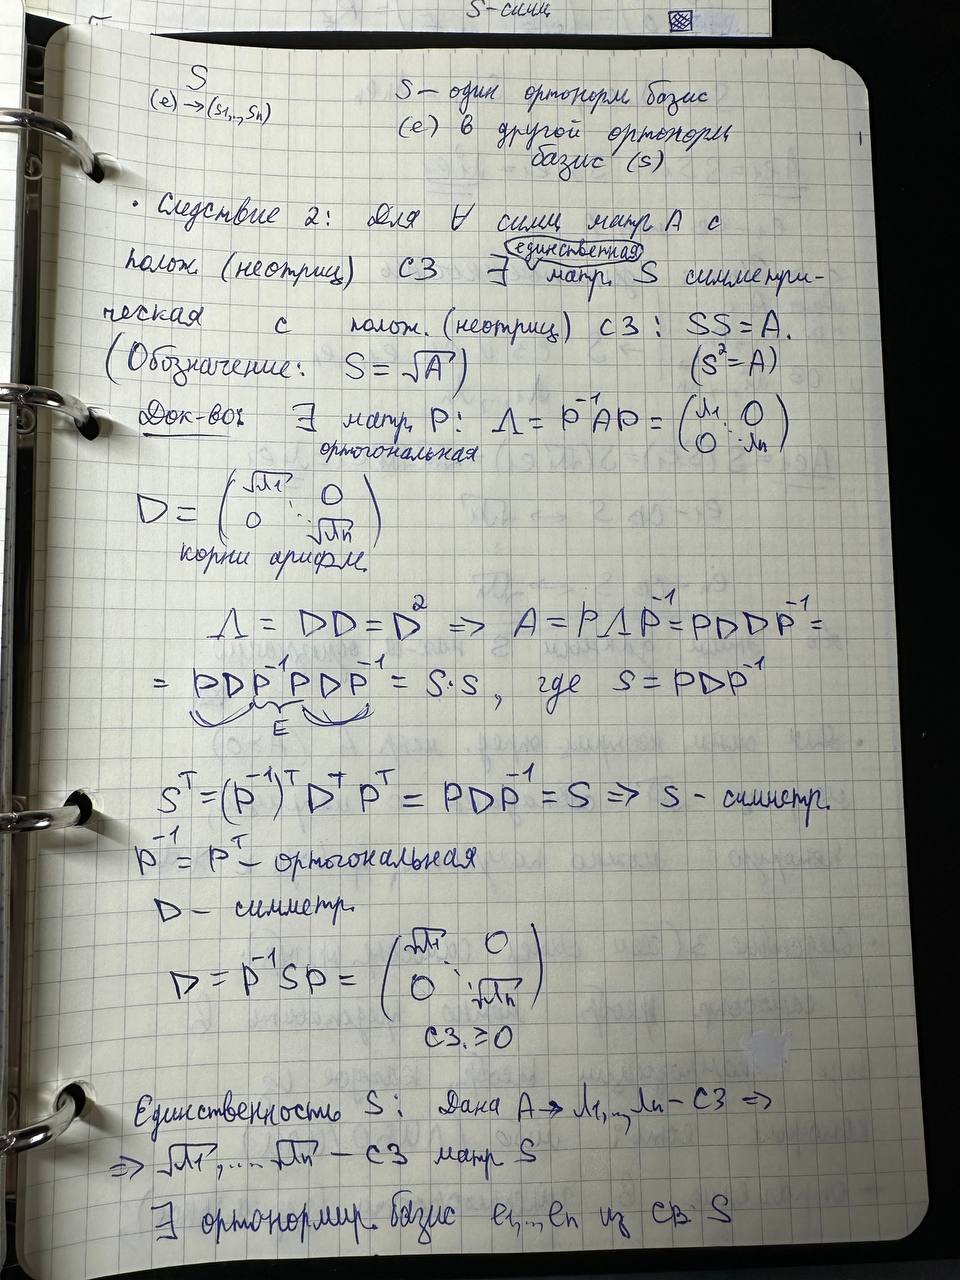 S-симм
S
(e)→(s₁,..,sₙ)
S – один ортонорм базис
(e) в другой ортонорм
базис (s)
• Следствие 2: Для ∀ симм матр A с
единственная
полож (неотриц) СЗ ∃ матр. S симметри-
ческая с полож. (неотриц) СЗ: SS = A.
(Обозначение: S = √A) (S² = A)
Док-во: ∃ матр. P: Λ = P⁻¹AP = (λ₁ 0
ортогональная 0 ⋱ λₙ)
D = (√λ₁ 0
0 ⋱ √λₙ)
корни арифм.
Λ = DD = D² ⇒ A = PΛP⁻¹ = PDDP⁻¹ =
= PDP⁻¹PDP⁻¹ = S·S, где S = PDP⁻¹
E
Sᵀ = (P⁻¹)ᵀDᵀPᵀ = PDP⁻¹ = S ⇒ S – симметр.
P⁻¹ = Pᵀ – ортогональная
D – симметр.
D = P⁻¹SP = (√λ₁ 0
0 ⋱ √λₙ)
СЗ. ≥ 0
Единственность S: Дана A → λ₁,..,λₙ – СЗ ⇒
⇒ √λ₁,....√λₙ – СЗ матр S
∃ ортонормир. базис e₁,..,eₙ из св. S